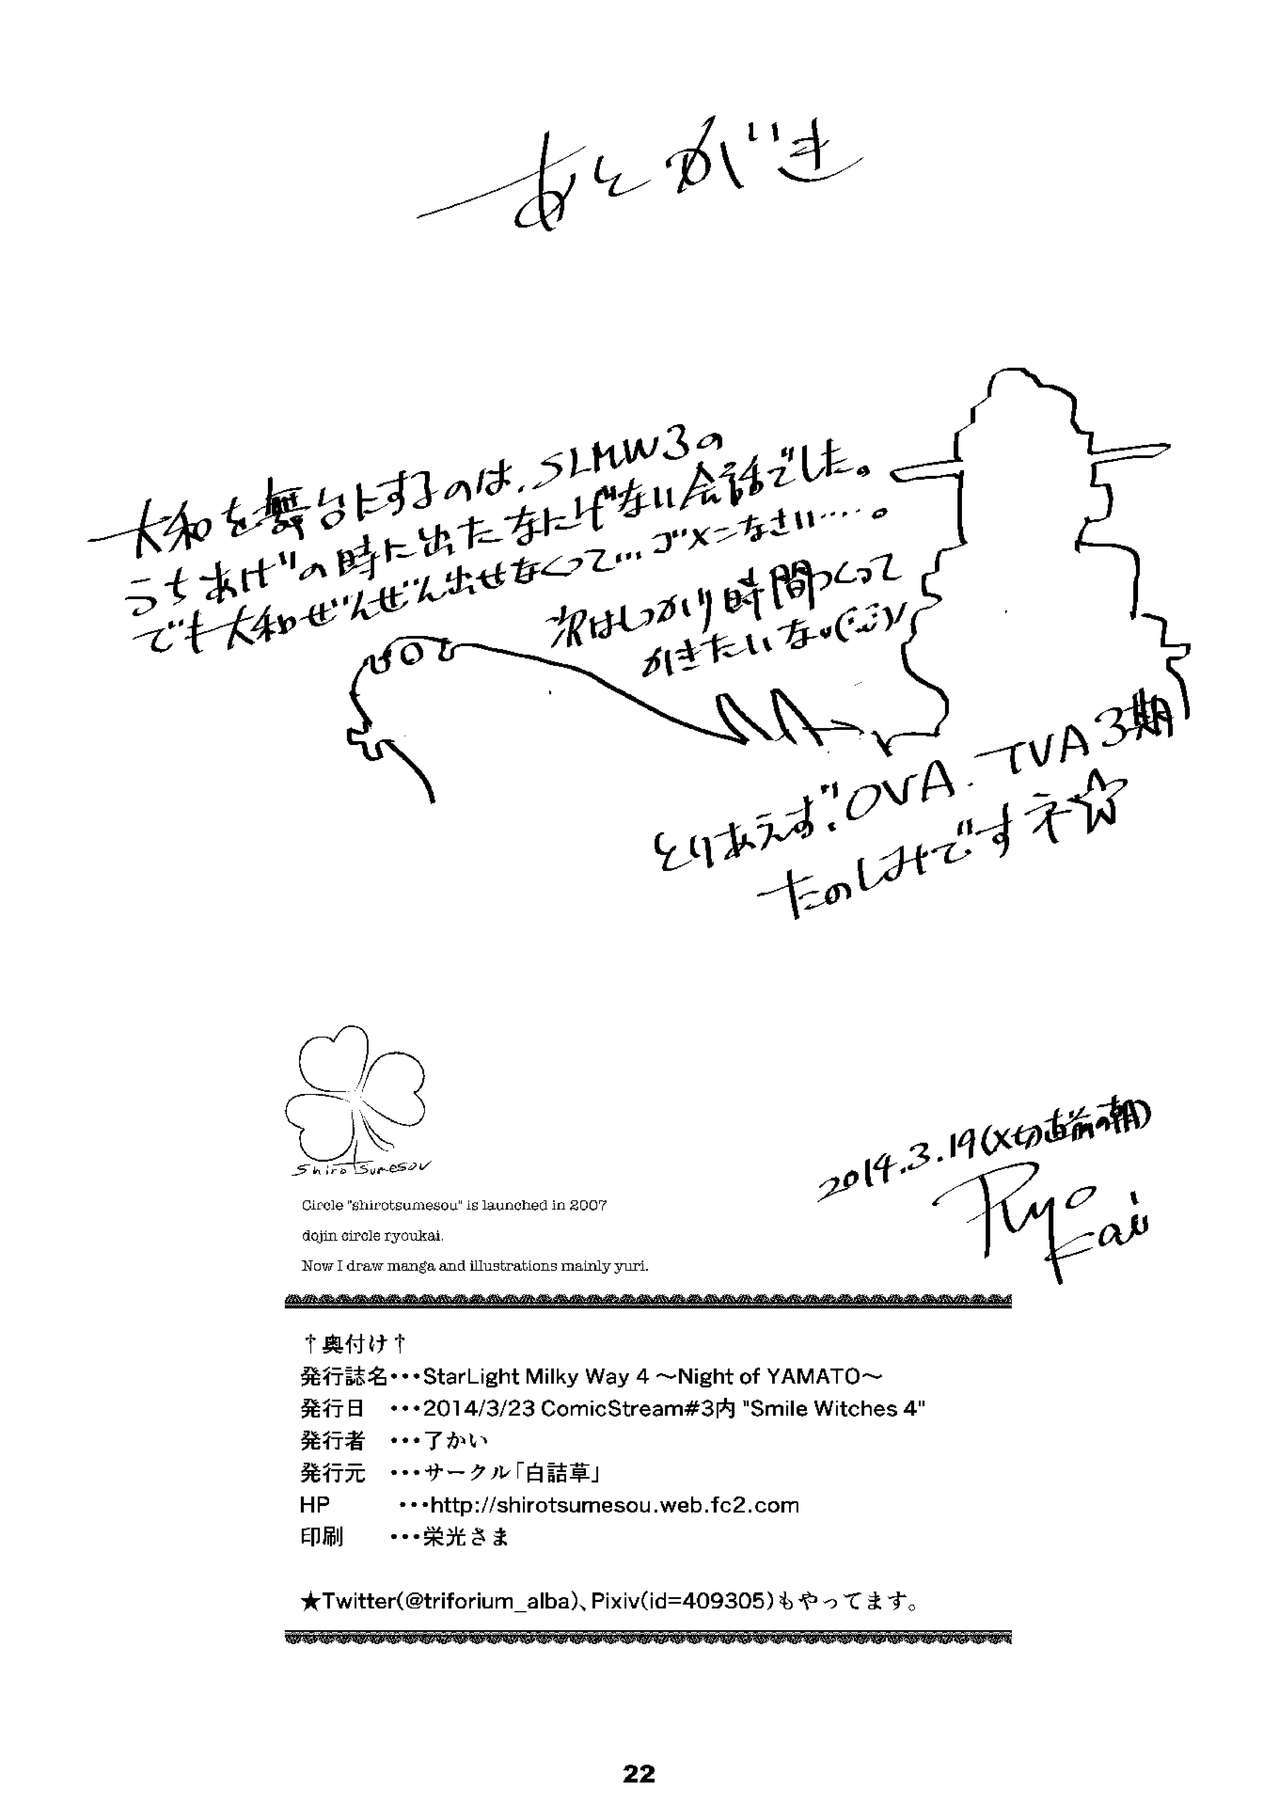 あとがき
大和を舞台にするのは、SLMW3の
うちあげの時に出たなにげない会話でした。
でも大和ぜんぜん出せなくって…ゴメンなさい……。
次はしっかり時間つくって
かきたいな。
とりあえず、OVA、TVA3期
たのしみですネ☆
shirotsumesou
2014.3.19(〆切直前の朝)
Ryo
Kai
Circle "shirotsumesou" is launched in 2007
dojin circle ryoukai.
Now I draw manga and illustrations mainly yuri.
†奥付け†
発行誌名・・・StarLight Milky Way 4 ～Night of YAMATO～
発行日 ・・・2014/3/23 ComicStream#3内 "Smile Witches 4"
発行者 ・・・了かい
発行元 ・・・サークル「白詰草」
HP ・・・http://shirotsumesou.web.fc2.com
印刷 ・・・栄光さま
★Twitter(@triforium_alba)、Pixiv(id=409305)もやってます。
22